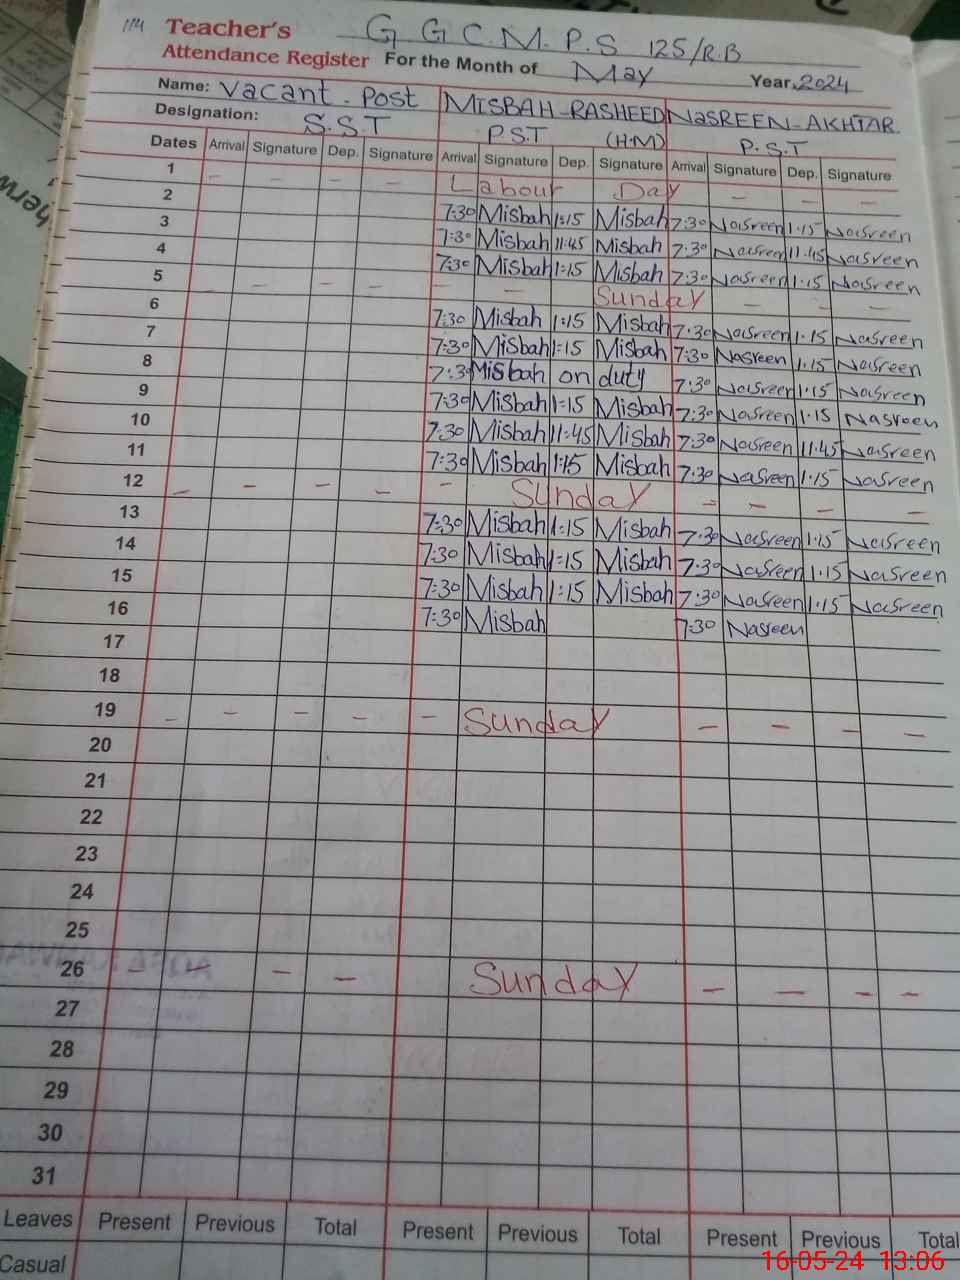 114 Teacher's G G C.M.P.S 125/R.B
Attendance Register For the Month of May Year. 2024
Name: Vacant - Post MISBAH-RASHEED NaSREEN-AKHTAR.
Designation: S.S.T P.S.T (H.M) P.S.T
Dates Arrival Signature Dep. Signature Arrival Signature Dep. Signature Arrival Signature Dep. Signature
1 - - - - Labour Day - - -
2 7:30 Misbah 1:15 Misbah 7:30 Nasreen 1·15 Nasreen
3 7:30 Misbah 11:45 Misbah 7:30 Nasreen 11·45 Nasreen
4 7:30 Misbah 1:15 Misbah 7:30 Nasreen 1·15 Nasreen
5 - - - - - - Sunday - - -
6 7:30 Misbah 1:15 Misbah 7:30 Nasreen 1·15 Nasreen
7 7:30 Misbah 1:15 Misbah 7:30 Nasreen 1·15 Nasreen
8 7:30 Misbah on duty 7:30 Nasreen 1·15 Nasreen
9 7:30 Misbah 1:15 Misbah 7:30 Nasreen 1·15 Nasreen
10 7:30 Misbah 11:45 Misbah 7:30 Nasreen 11·45 Nasreen
11 7:30 Misbah 1:15 Misbah 7:30 Nasreen 1·15 Nasreen
12 - - - - - Sunday - - - -
13 7:30 Misbah 1:15 Misbah 7:30 Nasreen 1·15 Nasreen
14 7:30 Misbah 1:15 Misbah 7:30 Nasreen 1·15 Nasreen
15 7:30 Misbah 1:15 Misbah 7:30 Nasreen 1·15 Nasreen
16 7:30 Misbah 7:30 Nasreen
17
18
19 - - - - - Sunday - - - -
20
21
22
23
24
25
26 - - - - Sunday - - - -
27
28
29
30
31
Leaves Present Previous Total Present Previous Total Present Previous Total
Casual
16-05-24 13:06